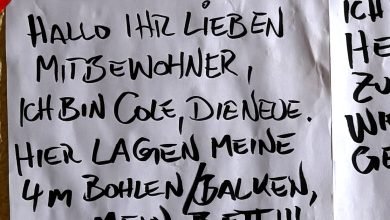 HALLO IHR LIEBEN
MITBEWOHNER,
ICH BIN COLE, DIE NEUE.
HIER LAGEN MEINE
4m BOHLEN/BALKEN,
MEIN BETT!!!
ICH
HE
ZU
WI
GE